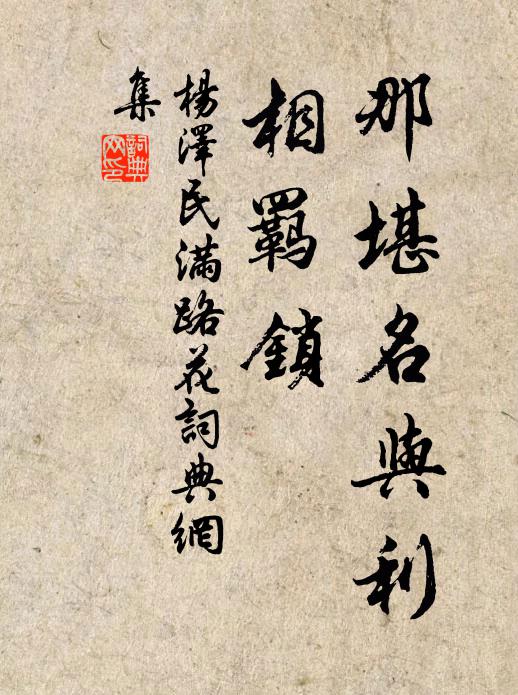 那堪名與利
相羈鎖
楊澤民滿路花詞典網
集
詞典
网印